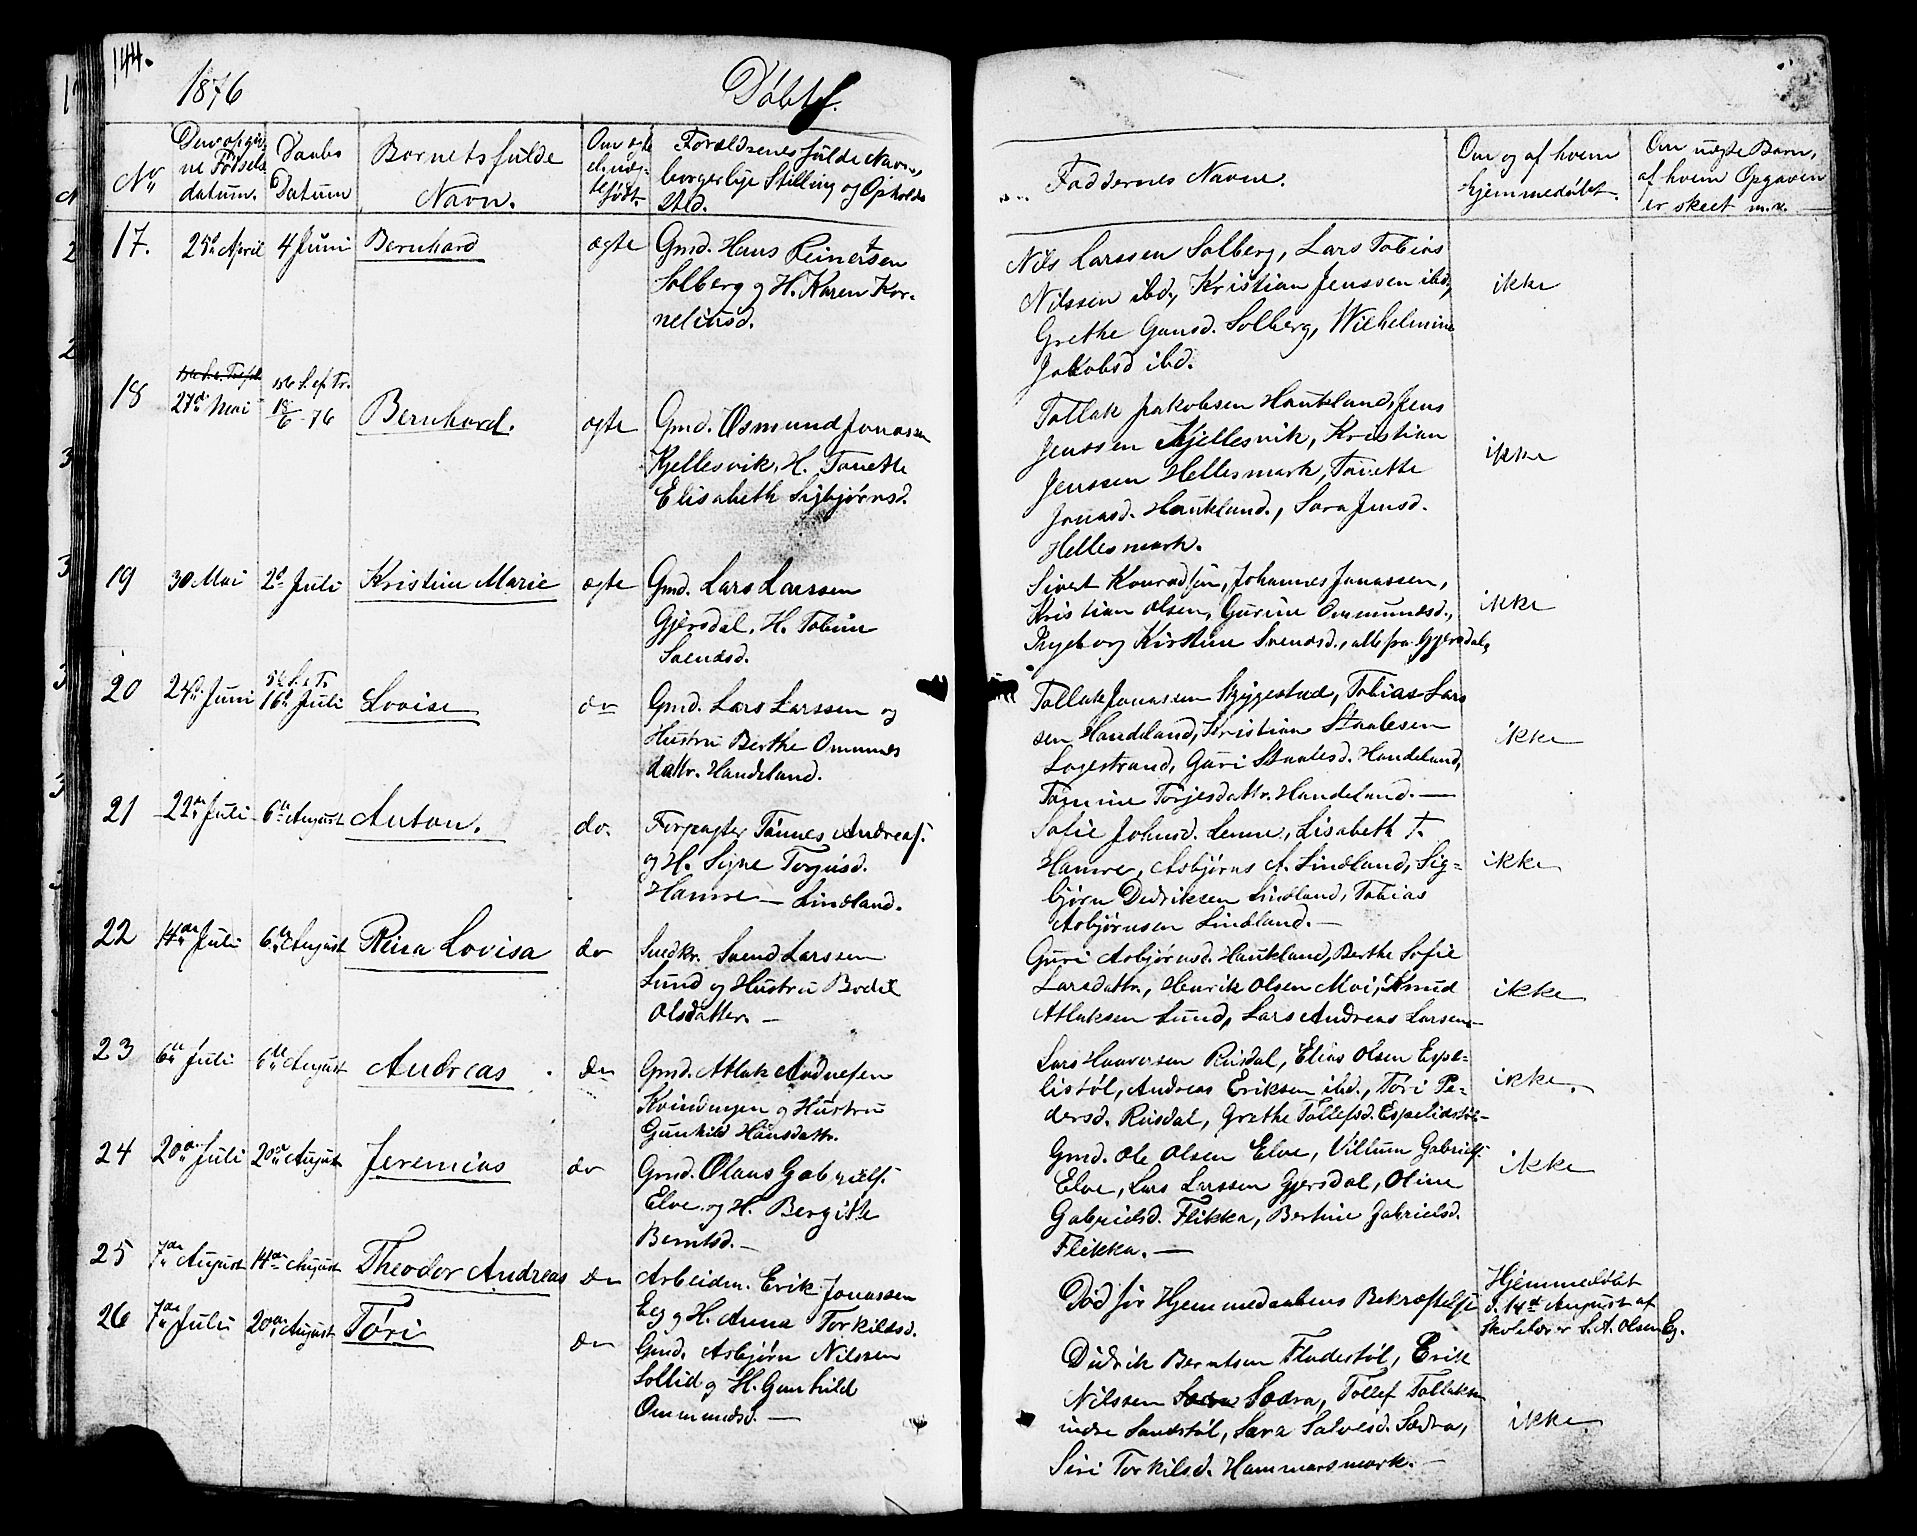 144.
1876
Døbte.
No
Den opgiv-
ne Fødsels
datum.
Daabs
Datum
Barnets fulde
Navn.
Om ægte
el. uæg-
te født.
Forældrenes fulde Navn,
borgerlige Stilling og Opholds
Sted.
Faddernes Navne.
Om og af hvem
hjemmedøbt.
Om uægte Barn,
af hvem Opgaven
er skeet m.v.
17.
25de April
4 Juni
Bernhard
ægte
Gmd. Hans Reinertsen
Solberg og H. Karen Kor-
neliusd.
Nils Larssen Solberg, Lars Tobias
Nilssen ibd, Kristian Jenssen ibd,
Grethe Gunsd. Solberg, Wilhelmine
Jakobsd ibd.
ikke
18
27de Mai
S. ef. Tr.
18/6 76
Bernhard.
ægte
Gmd. Osmund Jonassen
Kjellesvik, H. Tonette
Elisabeth Sigbjørnsd.
Tollak Jakobsen Haukland, Jens
Jenssen Kjellesvik, Kristian
Jenssen Hellesmark, Tonette
Jonasd. Haukland., Sara Jensd.
Hellesmark.
ikke
19
30 Mai
2den Juli
Kristine Marie
ægte
Gmd. Lars Larssen
Gjersdal, H. Tobine
Svendsd.
Sivert Konradsen, Johannes Jonassen,
Kristian Olsen, Gurine Ommundsd.,
Ingeborg Kirstine Svendsd., alle fra Gjersdal,
ikke
20
24de Juni
5te S. e. Tr.
16de Juli
Lovise
do
Gmd. Lars Larssen og
Hustru Berthe Ommunds
dattr. Handeland.
Tollak Jonassen Skjggestad, Tobias Lars
sen Handeland, Kristian Staalesen
Logestrand, Guri Staalesd. Handeland,
Tomine Torjesdattr. Handeland. —
ikke
21
22de Juli
6te August
Anton.
do.
Forpagter Tønnes Andreas.
og H. Signe Torgusd.
Hamre — Lindland.
Sofie Johnsd. Lenne, Lisabeth T.
Hamre, Asbjørns A. Lindland, Sig-
bjørn Dedriksen Lindland, Tobias
Asbjørnsen Lindland. —
ikke
22
14de Juli
6te August
Rina Lovisa
do
Snedkr. Svend Larssen
Lund og Hustru Bodil
Olsdatter. —
Guri Asbjørnsd. Haukland, Berthe Sofie
Larsdattr., Henrik Olsen Moi, Knud
Atlaksen Lund, Lars Andreas Larsen —
ikke
23
6te Juli
6te August
Andreas
do
Gmd. Atlak Aadnesen
Kvindingen og Hustru
Gunhild Hansdattr.
Lars Haaversen Rusdal, Elias Olsen Espe-
listøl, Andreas Eriksen ibd., Tøri Pe-
dersd. Rusdal, Grethe Tollefsd. Espelidstøl —
ikke.
24
20de Juli
20de August
Jeremias
do
Gmd. Olaus Gabriels.
Elve og H. Bergitte
Berntsd. —
Gmd. Ole Olsen Elve, Villum Gabriels.
Elve, Lars Larssen Gjersdal, Oline
Gabrielsd. Flikka, Bertine Gabrielsd.
Flikka. —
ikke
25
7de August
14de August
Theodor Andreas
do
Arbeidm. Erik Jonassen
Eeg og H. Anna Torkildsd.
Død før Hjemmedaabens Bekræftelse
Hjemmedøbt
d. 14de August af
Skolelærer S. A. Olsen Eg.
26
7de Juli
20de August
Tøri
do
Gmd. Asbjørn Nilssen
Sollid og H. Gunhild
Ommundsd. —
Didrik Berntsen Fladestøl, Erik
Nilssen Sædra, Tollef Tollaksen
indre Sandstøl, Sara Salvesd. Sædra,
Siri Torkilsd. Hammarsmark. —
ikke.